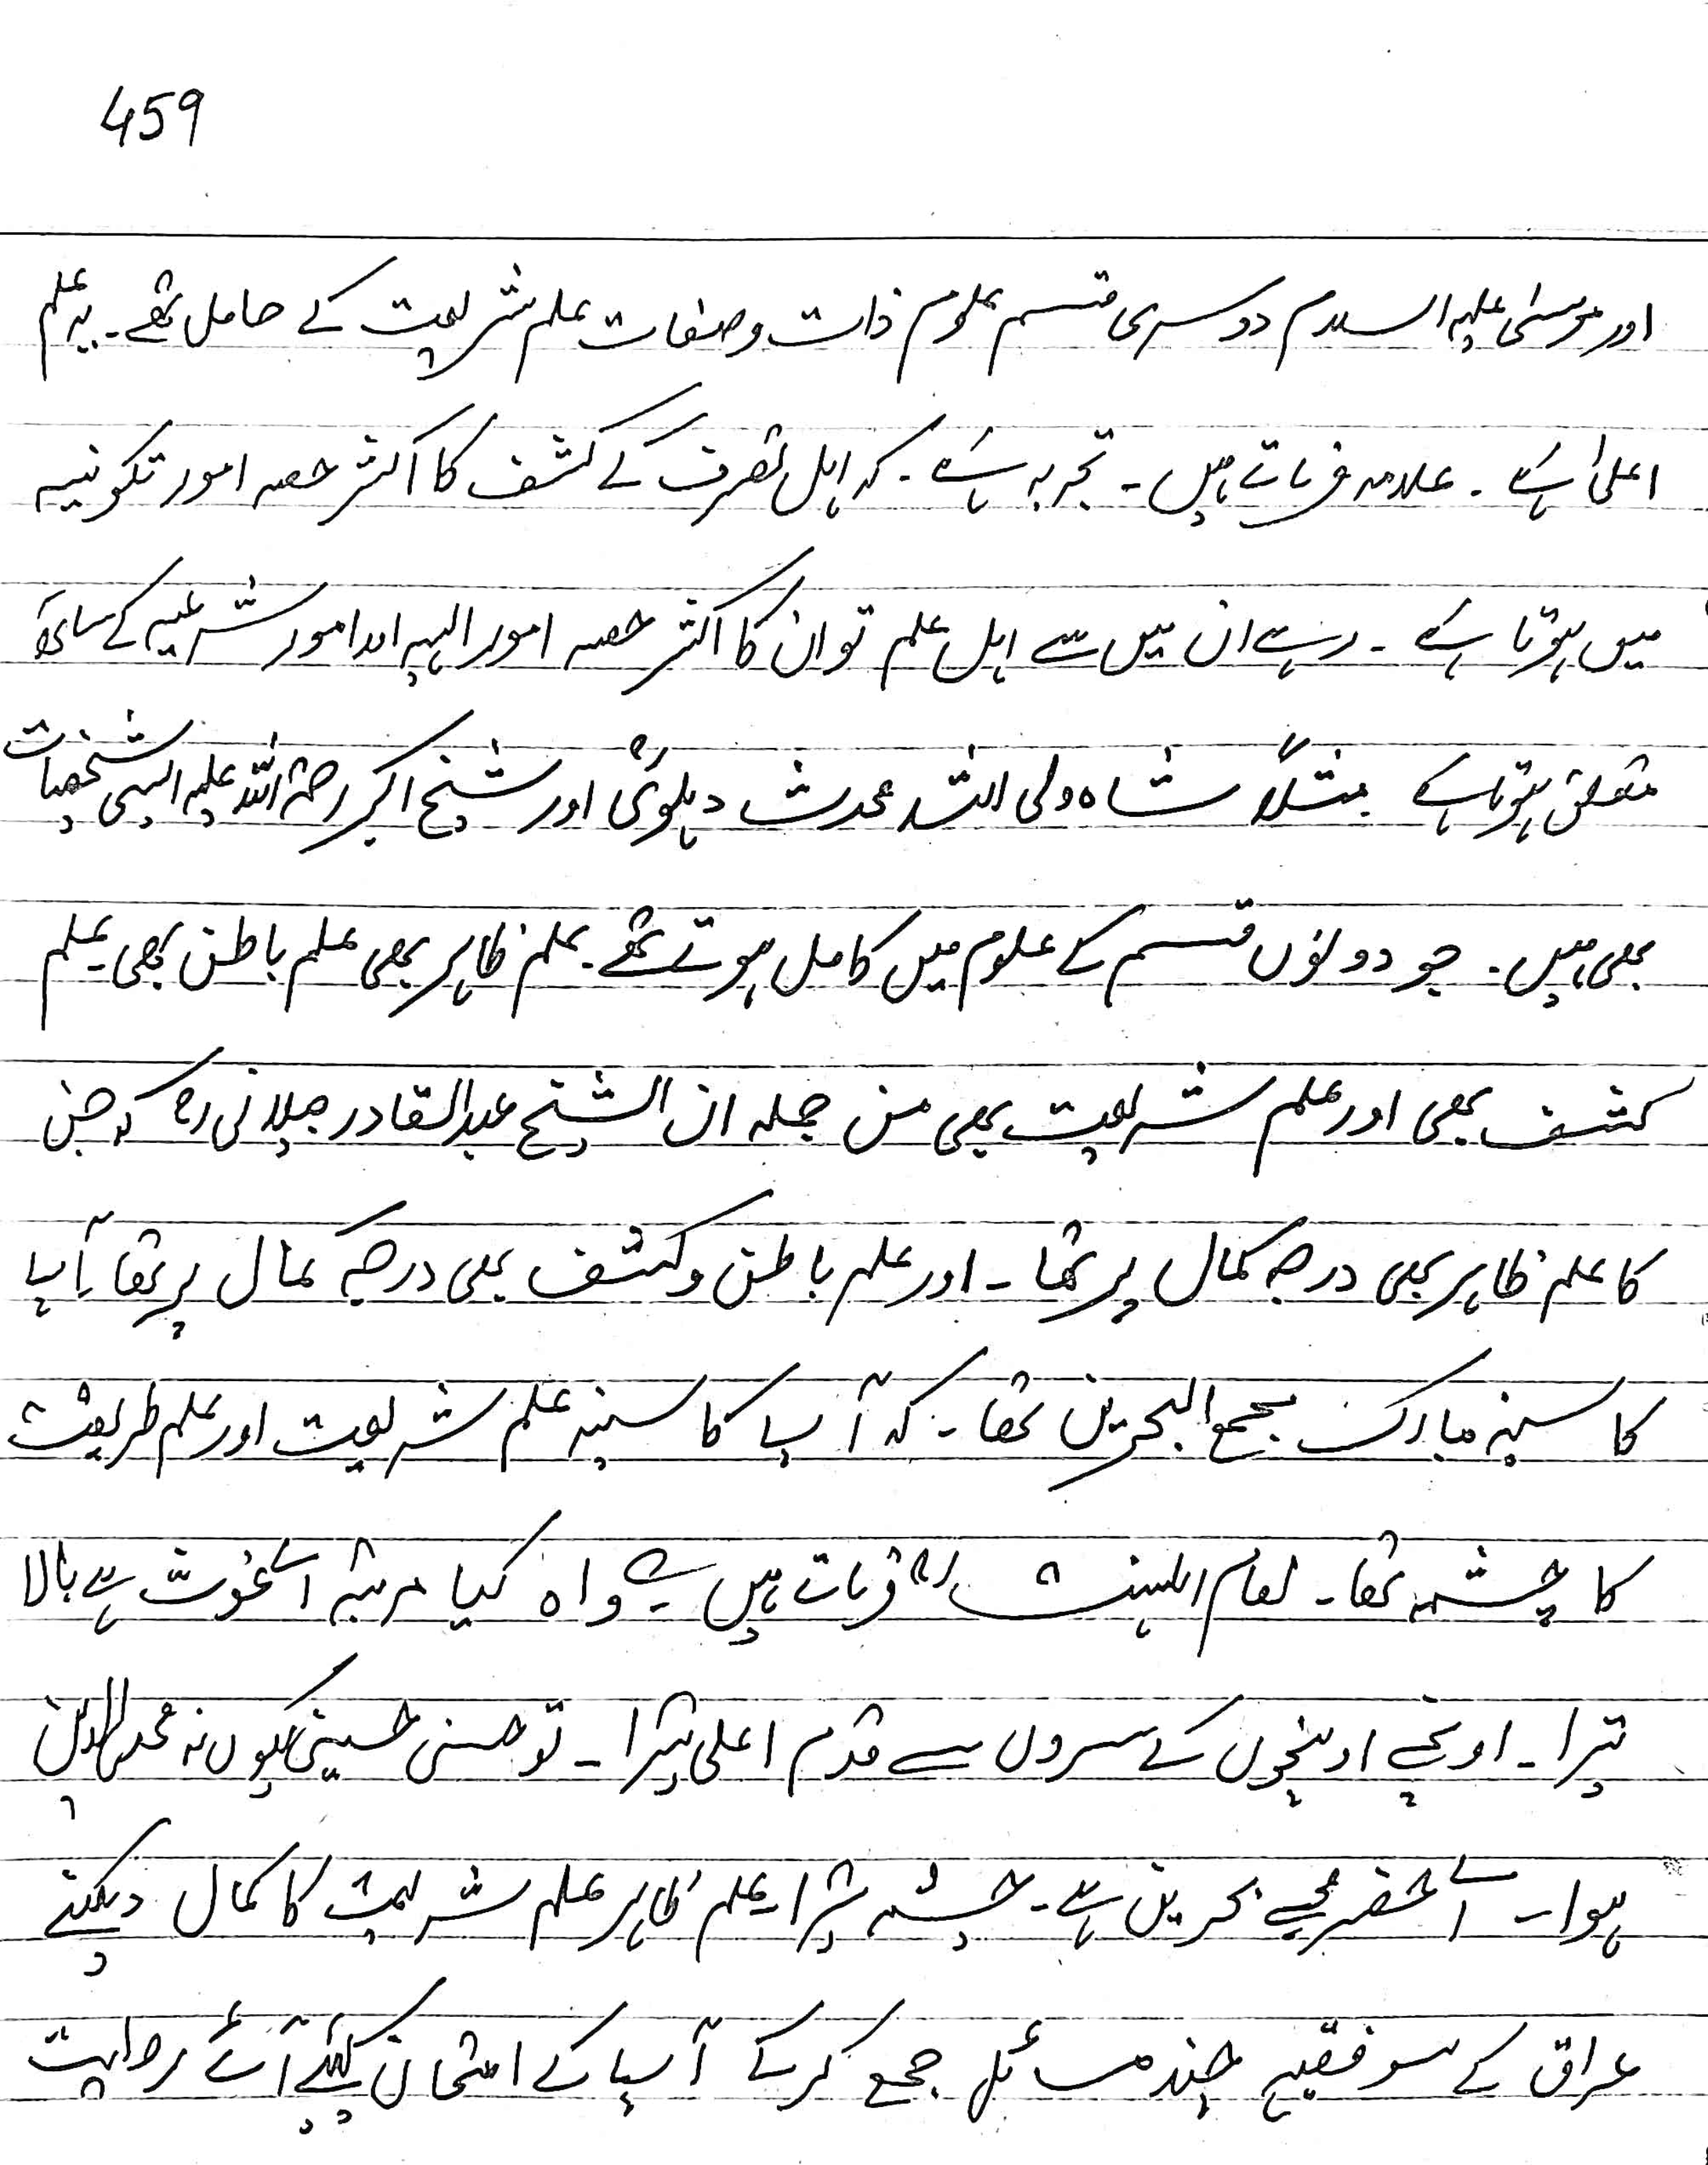 459
اور موسیٰ علیہ السلام دوسری قسم علوم ذات وصفات علم شریعت کے حامل تھے۔ یہ علم
اعلیٰ ہے ۔ علامہ فرماتے ہیں ۔ تجربہ ہے ۔ کہ اہل تصرف کے کشف کا اکثر حصہ امور تکونیہ
میں ہوتا ہے ۔ رہے ان میں سے اہل علم تو ان کا اکثر حصہ امور الہیہ اور امور شرعیہ کے ساتھ
متعلق ہوتا ہے مثلاً شاہ ولی اللہ محدث دہلویؒ اور شیخ اکبر رحمۃ اللہ علیہ ایسی شخصیات
بھی ہیں ۔ جو دونوں قسم کے علوم میں کامل ہوتے تھے ۔ علم ظاہر بھی علم باطن بھی علم
کشف بھی اور علم شریعت بھی من جملہ ان الشیخ عبدالقادر جیلانی رح کہ جن
کا علم ظاہر بھی درجہ کمال پر تھا ۔ اور علم باطن و کشف بھی درجہ کمال پر تھا آپ
کا سینہ مبارک مجمع البحرین تھا ۔ کہ آپ کا سینہ علم شریعت اور علم طریقت
کا چشمہ تھا ۔ امام اہلسنت رح فرماتے ہیں ؎ واہ کیا مرتبہ اے غوث ہے بالا
تیرا ۔ اونچے اونچوں کے سروں سے قدم اعلی تیرا ۔ تو حسنی حسینی کیوں نہ محی الدین
ہو ا ۔ اے خضر مجمع بحرین ہے ۔ چشمہ تیرا علم ظاہر علم شریعت کا کمال دیکھئے
عراق کے سو فقیہ چند مسائل جمع کرکے آپ کے امتحان کیلئے آئے روایت